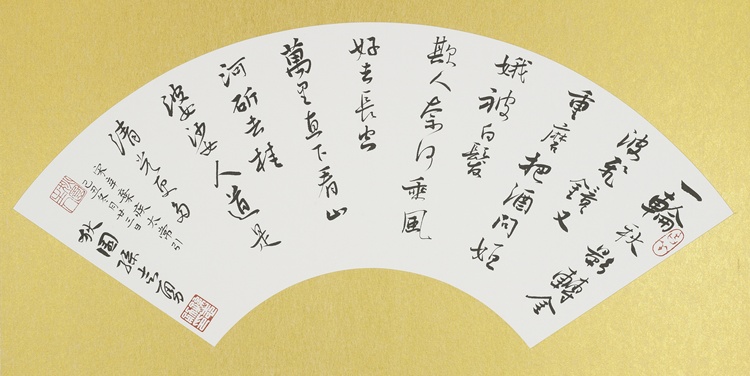 一輪秋影轉金
波飛鏡又
重磨把酒問姮
娥被白髮
欺人奈何乘風
好去長空
萬里直下看山
河斫去桂
婆娑人道是
清光更多
宋辛棄疾太常引
己丑冬月廿三日
孫勇